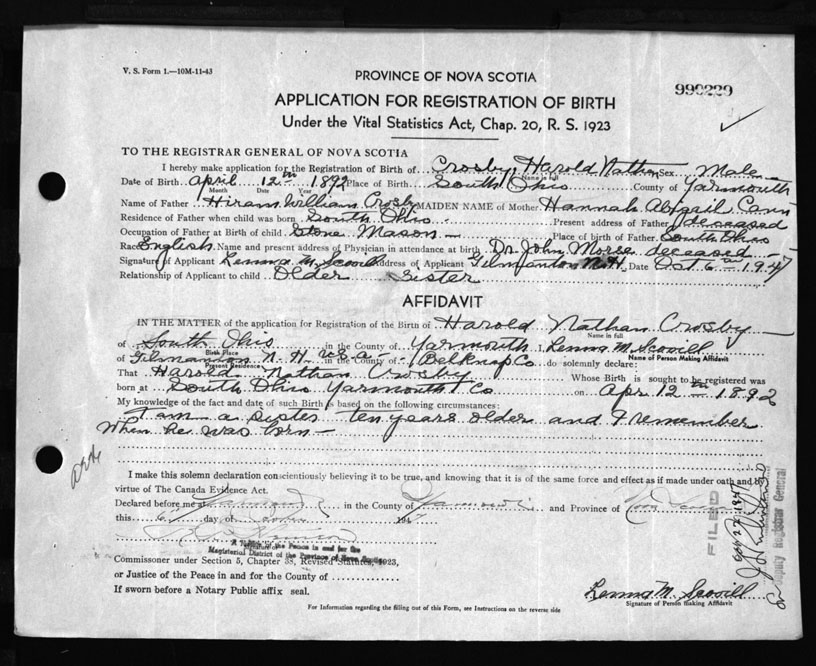 V. S. Form 1.—10M-11-43
PROVINCE OF NOVA SCOTIA
990229
APPLICATION FOR REGISTRATION OF BIRTH
Under the Vital Statistics Act, Chap. 20, R. S. 1923
TO THE REGISTRAR GENERAL OF NOVA SCOTIA
I hereby make application for the Registration of Birth of Crosby, Harold Nathan Sex Male
Name in full
Date of Birth April 12th 1892 Place of Birth South Ohio County of Yarmouth
Month Date Year
Name of Father Hiram William Crosby MAIDEN NAME of Mother Hannah Abigail Cann
Residence of Father when child was born South Ohio Present address of Father deceased
Occupation of Father at Birth of child Stone Mason Place of birth of Father South Ohio
Race English Name and present address of Physician in attendance at birth Dr. John Morse deceased
Signature of Applicant Lenna M. Scovill Address of Applicant Gilmanton N.H. Date Oct 6 1947
Relationship of Applicant to child Older Sister
AFFIDAVIT
IN THE MATTER of the application for Registration of the Birth of Harold Nathan Crosby
Name in full
of South Ohio in the County of Yarmouth Lenna M. Scovill
Birth Place Name of Person Making Affidavit
of Gilmanton N. H. U.S.A. in the County of Belknap Co do solemnly declare:
Present Residence
That Harold Nathan Crosby Whose Birth is sought to be registered was
born at South Ohio Yarmouth Co on Apr 12th 1892
My knowledge of the fact and date of such Birth is based on the following circumstances:
I am a sister ten years older and I remember
when he was born
I make this solemn declaration conscientiously believing it to be true, and knowing that it is of the same force and effect as if made under oath and by
virtue of The Canada Evidence Act.
Declared before me at in the County of and Province of
this day of 194
FILED
Deputy Registrar General
Signature of
Justice of the Peace in and for the
Magisterial District of the Province of Nova Scotia
Commissioner under Section 5, Chapter 38, Revised Statutes, 1923,
or Justice of the Peace in and for the County of
If sworn before a Notary Public affix seal.
Lenna M. Scovill
Signature of Person making Affidavit
For Information regarding the filling out of this Form, see Instructions on the reverse side